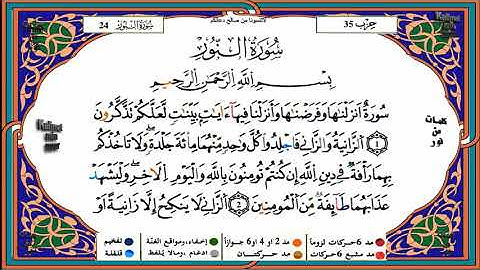 سورة النور 24
لاتنسونا من صالح دعائكم
حزب 35
سُورَةُ النُّورِ
بِسْمِ اللَّهِ الرَّحْمَٰنِ الرَّحِيمِ
سُورَةٌ أَنزَلْنَاهَا وَفَرَضْنَاهَا وَأَنزَلْنَا فِيهَا ءَايَاتٍ بَيِّنَاتٍ لَّعَلَّكُمْ تَذَّكَّرُونَ
١ الزَّانِيَةُ وَالزَّانِي فَاجْلِدُوا كُلَّ وَاحِدٍ مِّنْهُمَا مِائَةَ جَلْدَةٍ وَلَا تَأْخُذْكُم
بِهِمَا رَأْفَةٌ فِي دِينِ اللَّهِ إِن كُنتُمْ تُومِنُونَ بِاللَّهِ وَالْيَوْمِ الْآخِرِ وَلْيَشْهَدْ
عَذَابَهُمَا طَائِفَةٌ مِّنَ الْمُومِنِينَ ٢ الزَّانِي لَا يَنكِحُ إِلَّا زَانِيَةً أَوْ
كلمات
من
نور
مد 6 حركات لزوماً
مد 2 أو 4 أو 6 جوازاً
إخفاء، ومواقع الغنّة
تفخيم
مد مشبع 6 حركات
مد حركتان
إدغام، ومالا يُلفظ
قلقلة